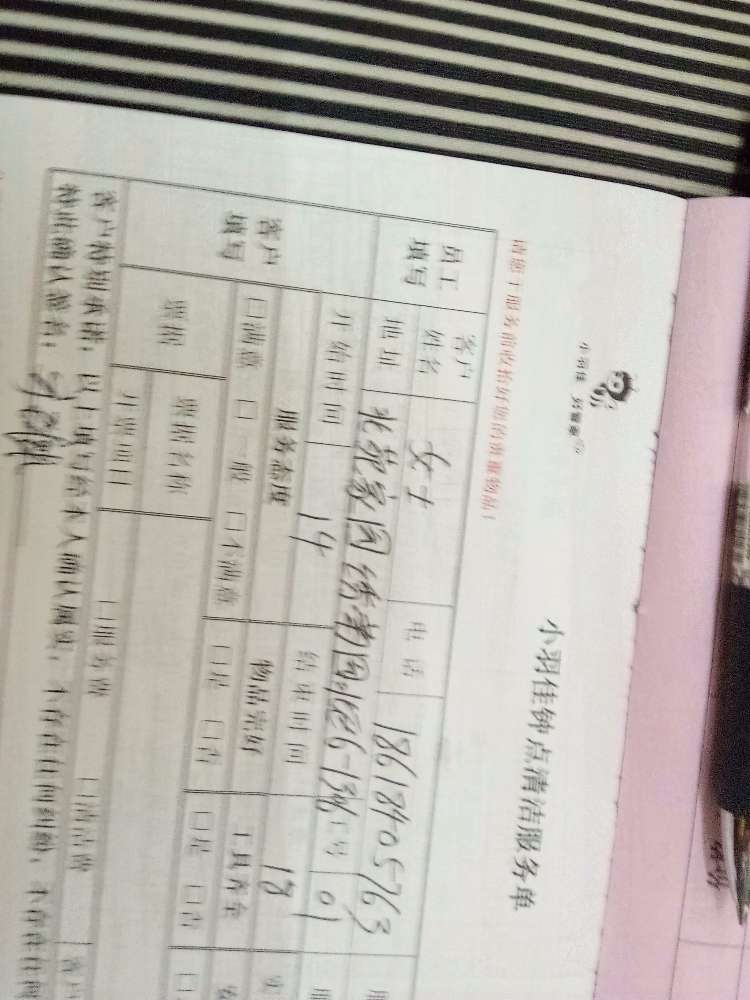 小羽佳 好管家
小羽佳钟点清洁服务单
请您于服务前收拾好您的贵重物品！
员工填写 客户姓名 女士 电话 18618405763
地址 北苑家园绣菊园 01
开始时间 14 结束时间 18
客户填写 服务态度 物品完好 工具齐全
□满意 □一般 □不满意 □是 □否 □是 □否
票据 票据名称
开票项目 □服务费 □清洁费
客户特别承诺：以上填写经本人确认属实，不存在任何纠纷，不存在任何
特此确认签名：